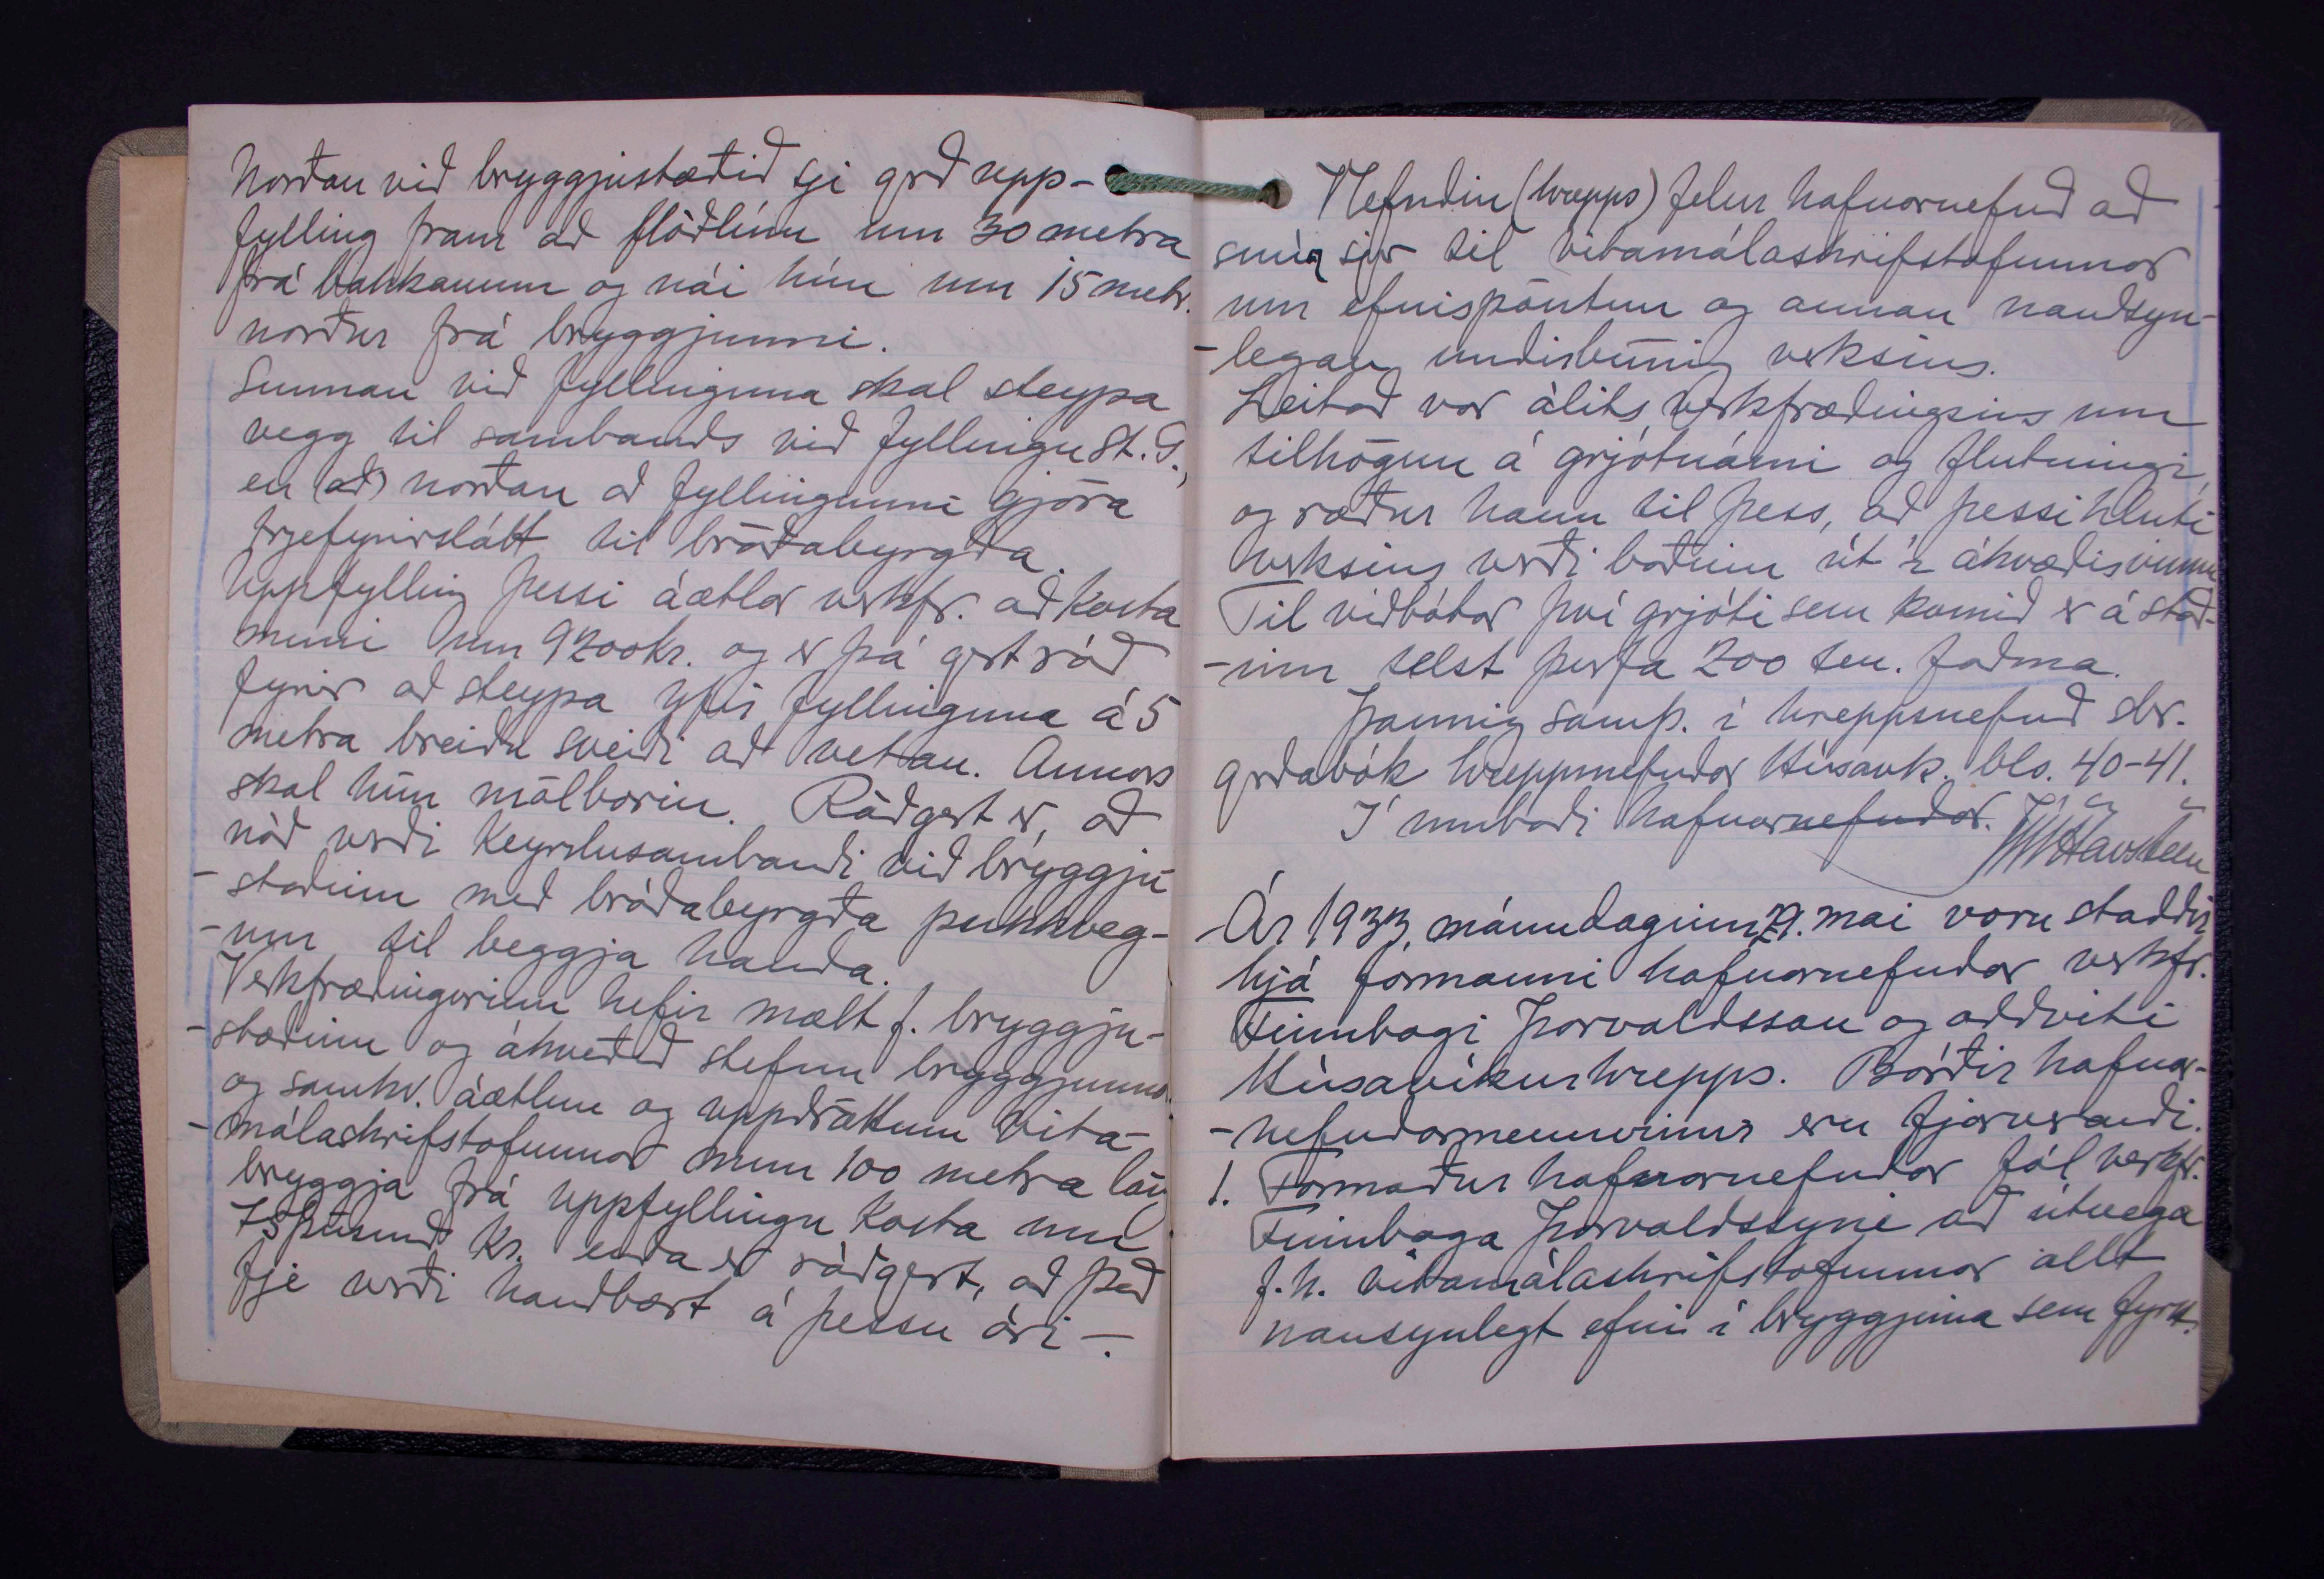 Norðan við bryggjustæðið sje grð upp-
fylling fram að flóðlínu um 30 metra
frá bakkanum og nái hún um 15 metr.
norður frá bryggjunni.
Sunnan við fyllinguna skal steypa
vegg til sambands við fyllingu St. G.,
en (að) norðan að fyllingunni gjöra
trjefyrirslátt til bráðabyrgða.
Uppfylling þessi áætlar verkfr. að kosta
muni um 9200 kr. og er þá gert ráð
fyrir að steypa yfir fyllinguna á 5
metra breiðu svæði að vetan. Annars
skal hún malborin. Ráðgert er, að
náð verði keyrslusambandi við bryggju
-staðinn með bráðabyrgða pukkveg-
-um til beggja handa.
Verkfræðingurinn hefir mælt f. bryggju-
-stæðinu og ákveðið stefnu bryggjunnar
og samkv. áætlun og uppdráttum Vita-
-málaskrifstofunnar mun 100 metra láng
bryggja frá uppfyllingu kosta um
75 þúsund kr. enda er ráðgert, að það
fje verði handbært á þessu ári -.
Nefndin (hrepps) felur hafnarnefnd að
snúa sjer til vitamálaskrifstofunnar
um efnispöntun og annan nauðsyn-
-legan undirbúning verksins.
Leitað var álits verkfræðingsins um
tilhögun á grjótnámi og flutningi,
og ræður hann til þess, að þessi hluti
verksins verði boðinn út í ákvæðisvinnu
Til viðbótar því grjóti sem komið er á stað-
-inn telst þurfa 200 ten. faðma.
Þannig samþ. í hreppsnefnd sbr.
grðabók hreppsnefndar Húsavk. bls. 40-41.
Í umboði hafnarnefndar.
JHavsteen
Ár 1933, mánudaginn 29. mai voru staddir
hjá formanni hafnarnefndar verkfr.
Finnbogi Þorvaldsson og oddviti
Húsavíkurhrepps. Báðir hafnar-
-nefndarmennirnir eru fjarverandi.
1. Formaður hafnarnefndar fól verkfr.
Finnboga Þorvaldssyni að útvega
f. h. vitamálaskrifstofunnar allt
nausynlegt efni í bryggjuna sem fyrst.